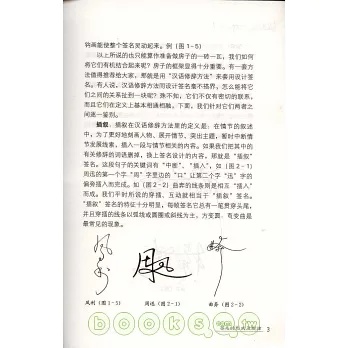 将画能使整个签名灵动起来。例（图 1-5）
以上所说的也只能算作准备做房子的一砖一瓦，我们如何
将它们有机结合起来呢？房子的框架显得十分重要。有一套方
法值得推荐给大家，那就是用“汉语修辞方法”来套用设计签
名。有人说，汉语修辞方法而设计签名毫不搭界，怎么能将它
们之间的关系扯到一块呢？殊不知，它们不仅有密切的联系，
而且它们在定义上基本相通相融。下面，我们针对它们两者之间
逐一鉴别。
插叙。插叙在汉语修辞方法里的定义是：在情节的叙述
中，为了更好地刻画人物、展开情节、突出主题，暂时中断情
节发展线索，插入一段与情节相关的内容。如果我们把其中的
有关修辞的词语删掉，换上签名设计的内容，那就是“插叙”
签名。这段句子的关键词有“中断”、“插入”，如（图 2-1）
周迅的第一个字“周”字里边的“口”让第二个字“迅”字的
偏旁插入而完成。如（图 2-2）曲奔的线条则是相互“插入”
而成。我们平时所说的穿插、互动就相当于“插叙”签名。
“插叙”签名的特征十分明显。每帧签名它总有一笔贯穿头尾，
并且穿插的线条以弧线或圆圈或斜线为主，方变圆、弯变曲是
最常见的现象。
凤利（图 1-5） 周迅（图 2-1） 曲奔（图 2-2）
books.com.tw
3